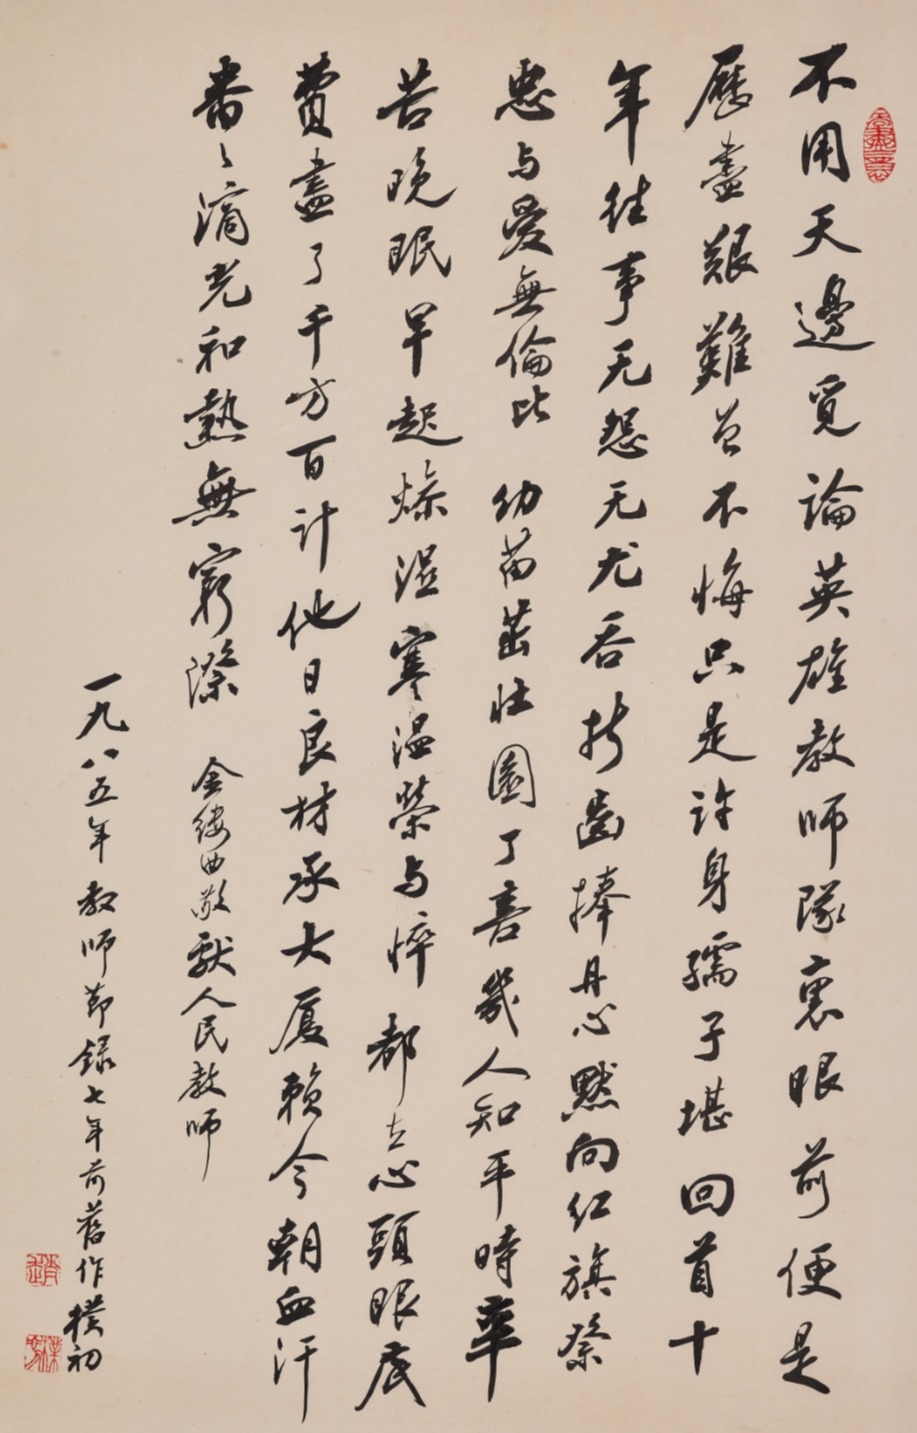 不用天邊覓論英雄教師隊裏眼前便是
歷盡艱難曾不悔只是許身孺子堪回首十
年往事无怨无尤吞折齒捧丹心默向红旗祭
忠与愛無倫比 幼苗茁壮園丁喜幾人知平時辛
苦晚眠早起燥濕寒温榮与悴都在心頭眼底
費盡了千方百计他日良材承大厦賴今朝血汗
番々滴光和熱無窮際 金缕曲敬獻人民教師
一九八五年教师節録七年前舊作 樸初